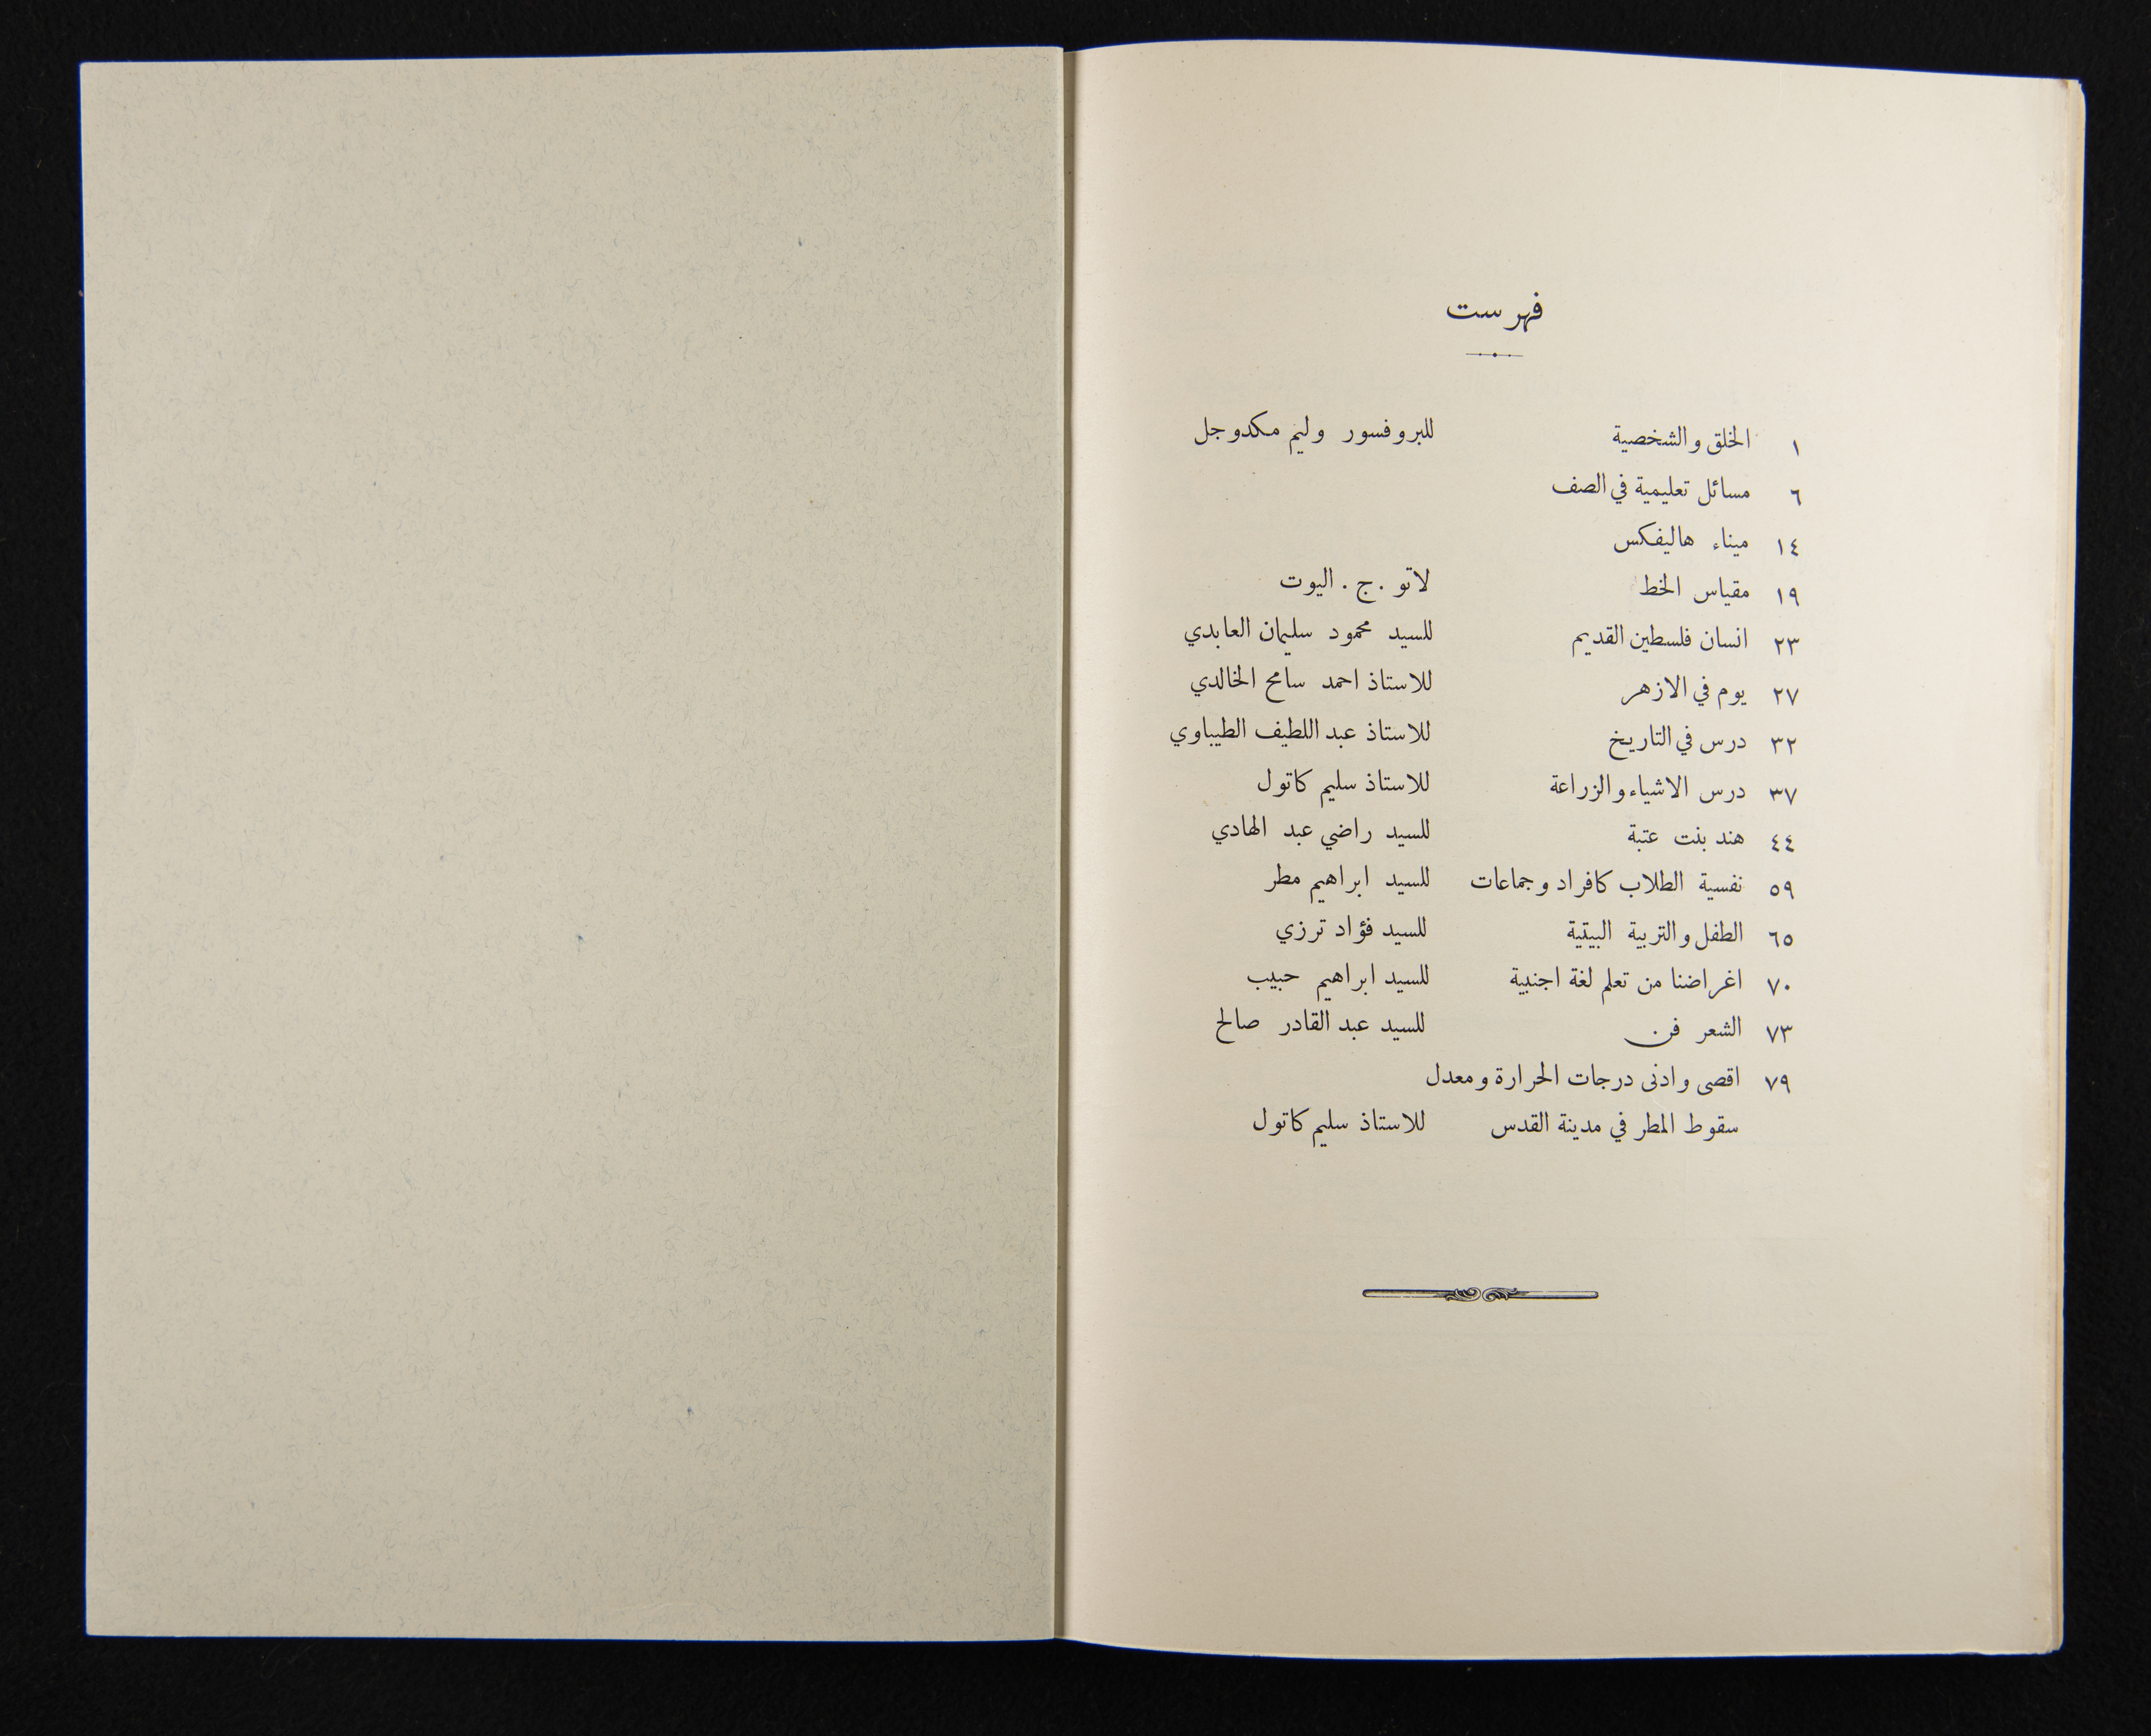 فهرست
١ الخلق والشخصية للبروفسور وليم مكدوجل
٦ مسائل تعليمية في الصف
١٤ ميناء هاليفكس
١٩ مقياس الخط لاتو . ج . اليوت
٢٣ انسان فلسطين القديم للسيد محمود سليمان العابدي
٢٧ يوم في الازهر للاستاذ احمد سامح الخالدي
٣٢ درس في التاريخ للاستاذ عبد اللطيف الطيباوي
٣٧ درس الاشياء والزراعة للاستاذ سليم كاتول
٤٤ هند بنت عتبة للسيد راضي عبد الهادي
٥٩ نفسية الطلاب كافراد وجماعات للسيد ابراهيم مطر
٦٥ الطفل والتربية البيتية للسيد فؤاد ترزي
٧٠ اغراضنا من تعلم لغة اجنبية للسيد ابراهيم حبيب
٧٣ الشعر فن للسيد عبد القادر صالح
٧٩ اقصى وادنى درجات الحرارة ومعدل
سقوط المطر في مدينة القدس للاستاذ سليم كاتول